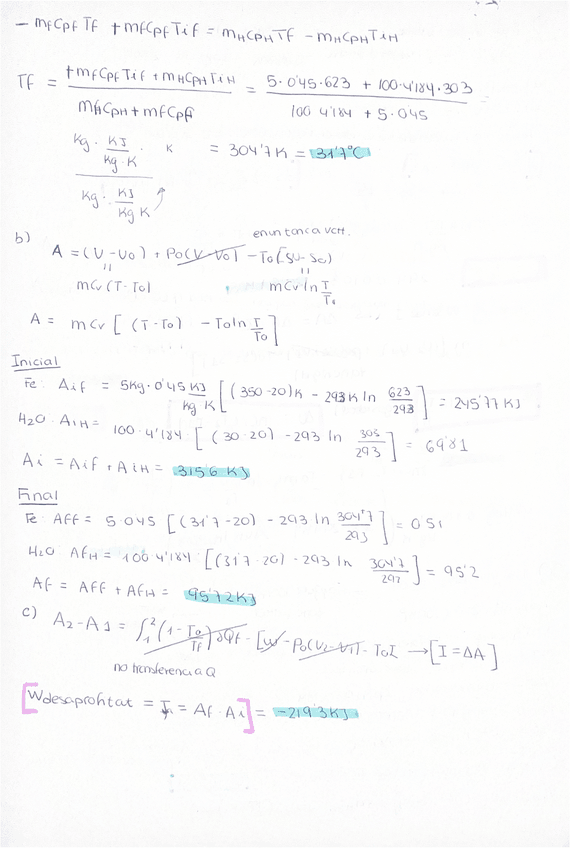 - mfCpf Tf + mfCpf Tif = mHCpH Tf - mHCpH TiH
Tf = +mfCpf Tif + mHCpH TiH / mHCpH + mfCpf = 5·0'45·623 + 100·4'184·303 / 100 4'184 + 5·045
Kg · KJ / Kg·K · K = 304'7 K = 31'7°C
Kg · KJ / Kg K
b)
A = (U - U0) + P0(V - V0) - T0(SU - S0)
mCv (T - T0) mCv ln T / T0
A = mCv [ (T - T0) - T0 ln T / T0 ]
Inicial
Fe: Aif = 5Kg · 0'45 KJ / Kg K [ (350 - 20)K - 293K ln 623 / 293 ] = 245'77 KJ
H2O: AiH = 100·4'184 [ (30·20) - 293 ln 303 / 293 ] = 69'81
Ai = Aif + AiH = 315'6 KJ
Final
Fe: Aff = 5·045 [ (31'7 - 20) - 293 ln 304'7 / 293 ] = 0'51
H2O: AfH = 100 4'184 · [ (31'7·20) - 293 ln 304'7 / 292 ] = 95'2
Af = Aff + AfH = 95'72 KJ
c) A2 - A1 = ∫1 2 (1 - T0 / Tf) δQf - [W - P0(V2 - V1)] - T0 I → [I = ΔA]
no transferencia Q
[Wdesaprofitat = I = Af - Ai] = -219'3 KJ